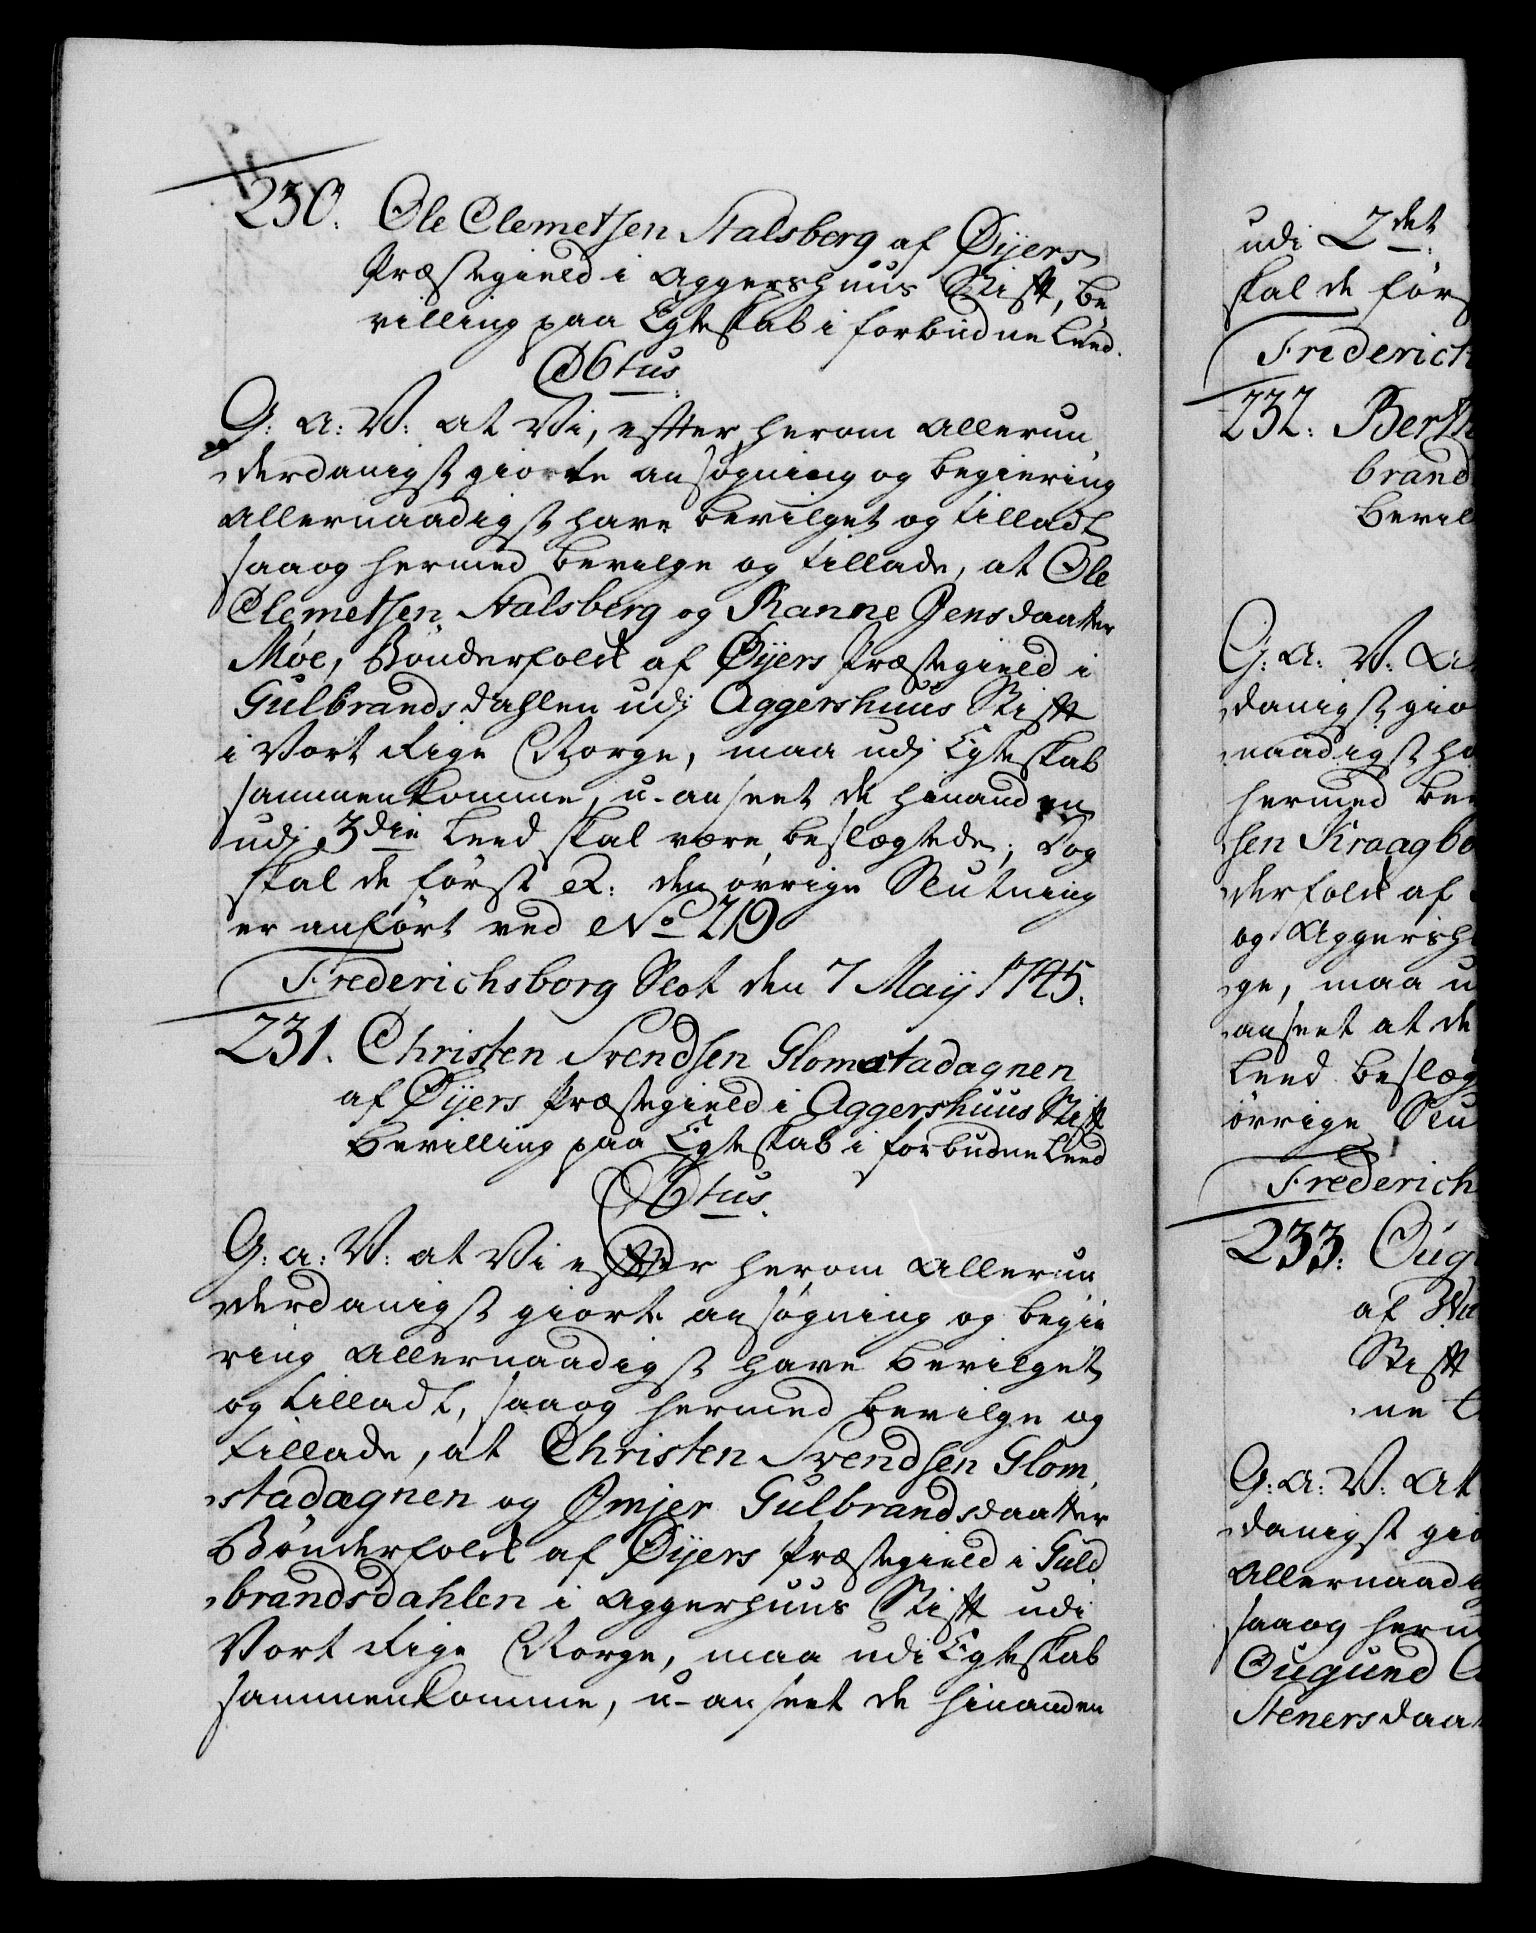 230. Ole Clemetsen Stalsberg af Öijers
Præstegield i Aggershuus Stift, Be
villing paa Egteskab i forbudne Leed.
Obtus.
G: A: V: at Vi, efter herom allerun
derdanigst giorte ansøgning og begiering
allernaadigst have bevilget og tilladt
saa og hermed bevilge og tillade, at Ole
Clemetsen Stalsberg og Ranne Jensdaatter
Moe, Bönderfolk af Öijers Præstegield i
Gulbrandsdahlen udj Aggershuus Stift
i Vort Rige Norge, maa udj Egteskab
sammenkomme, u-anseet de hinanden
udj 3die Leed skal være beslægtede; dog
skal de först &. den øvrige Slutning
er anfört ved No 219
Frederichsborg Slot den 7 Maij 1745.
231. Christen Svendsen Glomstadagnen
af Öijers Præstegield i Aggershuus Stift
Bevilling paa Egteskab i forbudne Leed
Obtus.
G: A: V: at Vi efter herom allerun
derdanigst giorte ansøgning og begie
ring allernaadigst have bevilget
og tilladt, saa og hermed bevilge og
tillade, at Christen Svendsen Glom
stadagnen og Ømjer Gulbrandsdaatter
Bönderfolk af Öijers Præstegield i Guld
brandsdahlen i Aggerhuus Stift udi
Vort Rige Norge, maa udi Egteskab
sammenkomme, u-anseet de hinanden
udi 2det
skal de förs
Frederich
232. Berth
brand
Bevil
G: A: V: A
danigst gio
naadigst ha
hermed be
sen Kraagbo
derfolk af
og Aggersh
ge, maa u
anseet at de
Leed beslæg
övrige Slu
Frederich
233. Öug
af
Stift
ne
G: A: V: At
danigst gio
allernaadi
saa og herm
Öugund
Stenersdaat